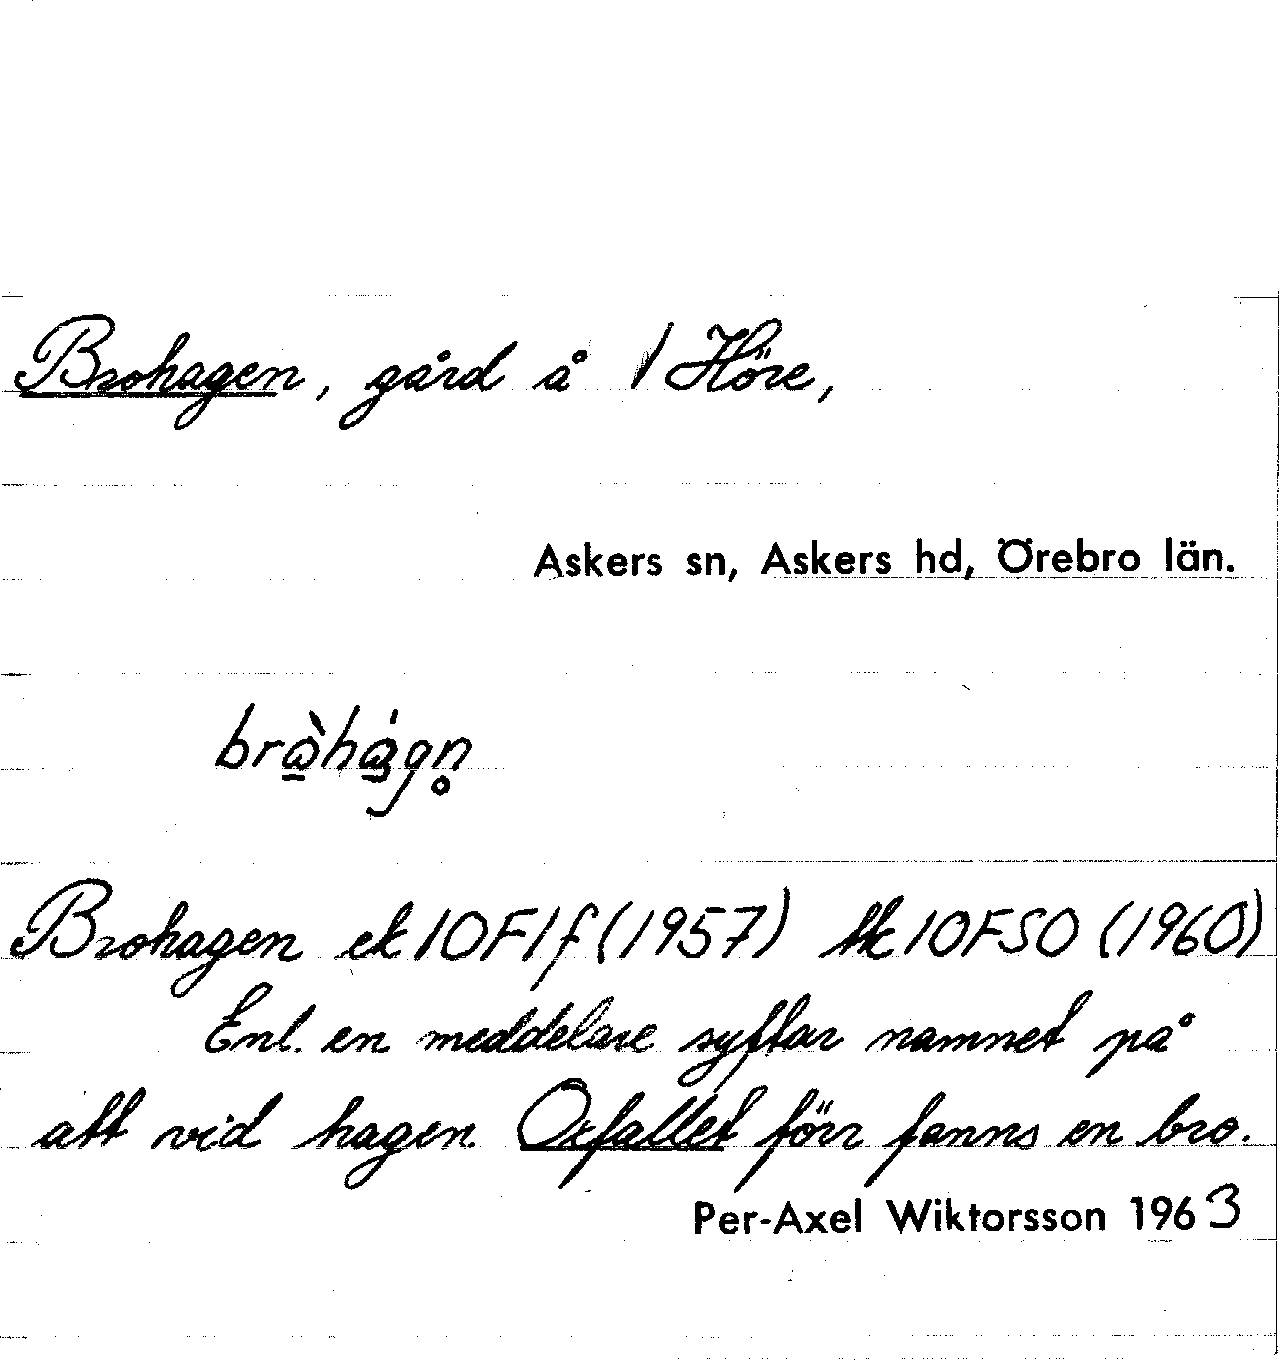 Brohagen, gård å V Höre,
Askers sn, Askers hd, Örebro län.
Brohagen ek 10F1f (1957) tk 10FSO (1960)
Enl. en meddelare syftar namnet på
att vid hagen Oxfallet förr fanns en bro.
Per-Axel Wiktorsson 1963